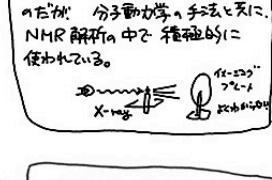 のだが、分子動力学の手法と共に、
NMR解析の中で積極的に
使われている。
X-ray
イメージング
プレート
よくわからない